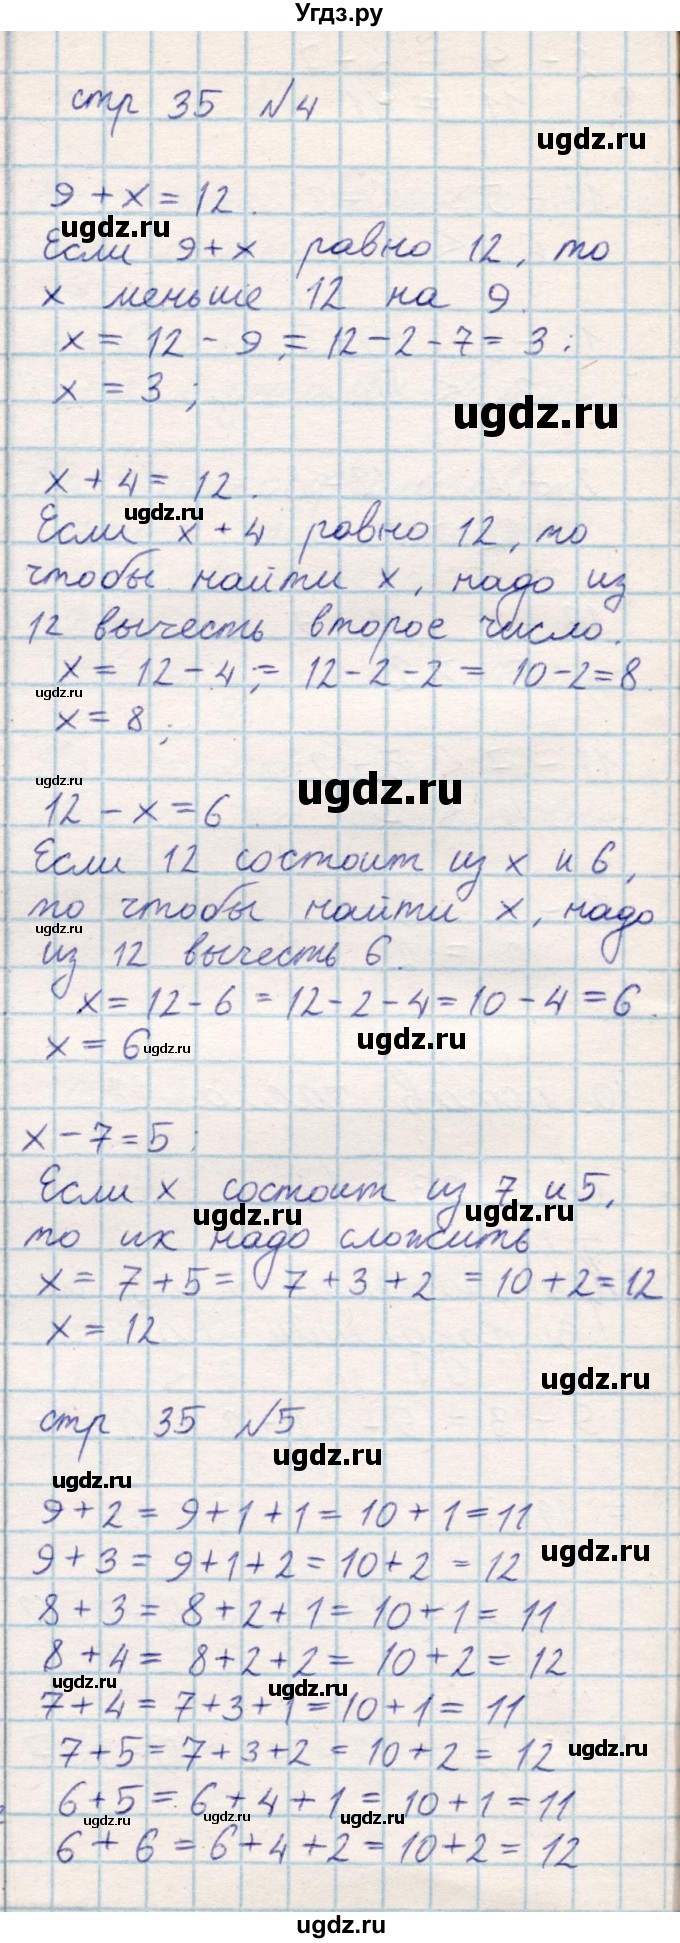 Угдз.ру
стр 35 №4
ugdz.ru
9 + x = 12.
ugdz.ru
Если 9 + x равно 12, то
x меньше 12 на 9.
x = 12 - 9 = 12 - 2 - 7 = 3;
x = 3;
ugdz.ru
x + 4 = 12.
ugdz.ru
Если x + 4 равно 12, то
чтобы найти x, надо из
12 вычесть второе число.
x = 12 - 4 = 12 - 2 - 2 = 10 - 2 = 8
ugdz.ru
x = 8;
ugdz.ru
ugdz.ru
12 - x = 6
Если 12 состоит из x и 6,
то чтобы найти x, надо
ugdz.ru
из 12 вычесть 6.
x = 12 - 6 = 12 - 2 - 4 = 10 - 4 = 6.
x = 6
ugdz.ru
ugdz.ru
x - 7 = 5;
Если x состоит из 7 и 5,
ugdz.ru
ugdz.ru
то их надо сложить
x = 7 + 5 = 7 + 3 + 2 = 10 + 2 = 12
x = 12
ugdz.ru
стр 35 №5
ugdz.ru
ugdz.ru
9 + 2 = 9 + 1 + 1 = 10 + 1 = 11
9 + 3 = 9 + 1 + 2 = 10 + 2 = 12
ugdz.ru
8 + 3 = 8 + 2 + 1 = 10 + 1 = 11
8 + 4 = 8 + 2 + 2 = 10 + 2 = 12
ugdz.ru
ugdz.ru
7 + 4 = 7 + 3 + 1 = 10 + 1 = 11
7 + 5 = 7 + 3 + 2 = 10 + 2 = 12
ugdz.ru
6 + 5 = 6 + 4 + 1 = 10 + 1 = 11
ugdz.ru
ugdz.ru
ugdz.ru
6 + 6 = 6 + 4 + 2 = 10 + 2 = 12
ugdz.ru